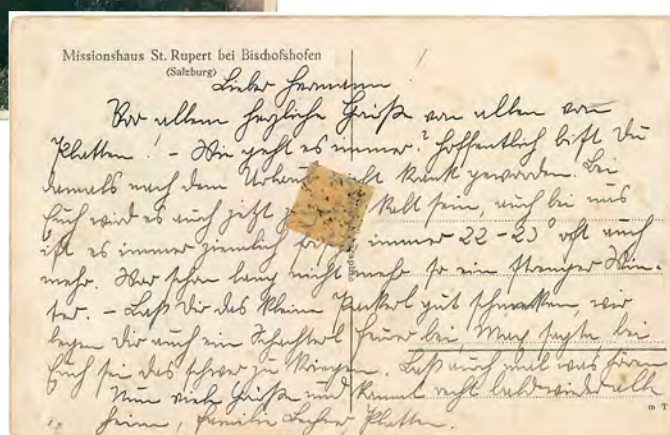 Missionshaus St. Rupert bei Bischofshofen
(Salzburg)
Lieber Hermann!
Vor allem herzliche Grüße von allen von
Platten! – Wie geht es immer? Hoffentlich bist Du
damals nach dem Urlaub nicht krank geworden. Bei
Euch wird es auch jetzt kalt sein, auch bei uns
ist es immer ziemlich frisch immer 22–23° oft auch
mehr. War schon lang nicht mehr so ein strenger Win-
ter. – Laß Dir das kleine Packerl gut schmecken, wir
legen dir auch ein Schachterl Feuer bei, sagte bei
Euch sei das schwer zu kriegen. Laß auch mal was hören
Nun viele Grüße und kommt recht bald wieder alle
heim, Familie Lechner, Platten.